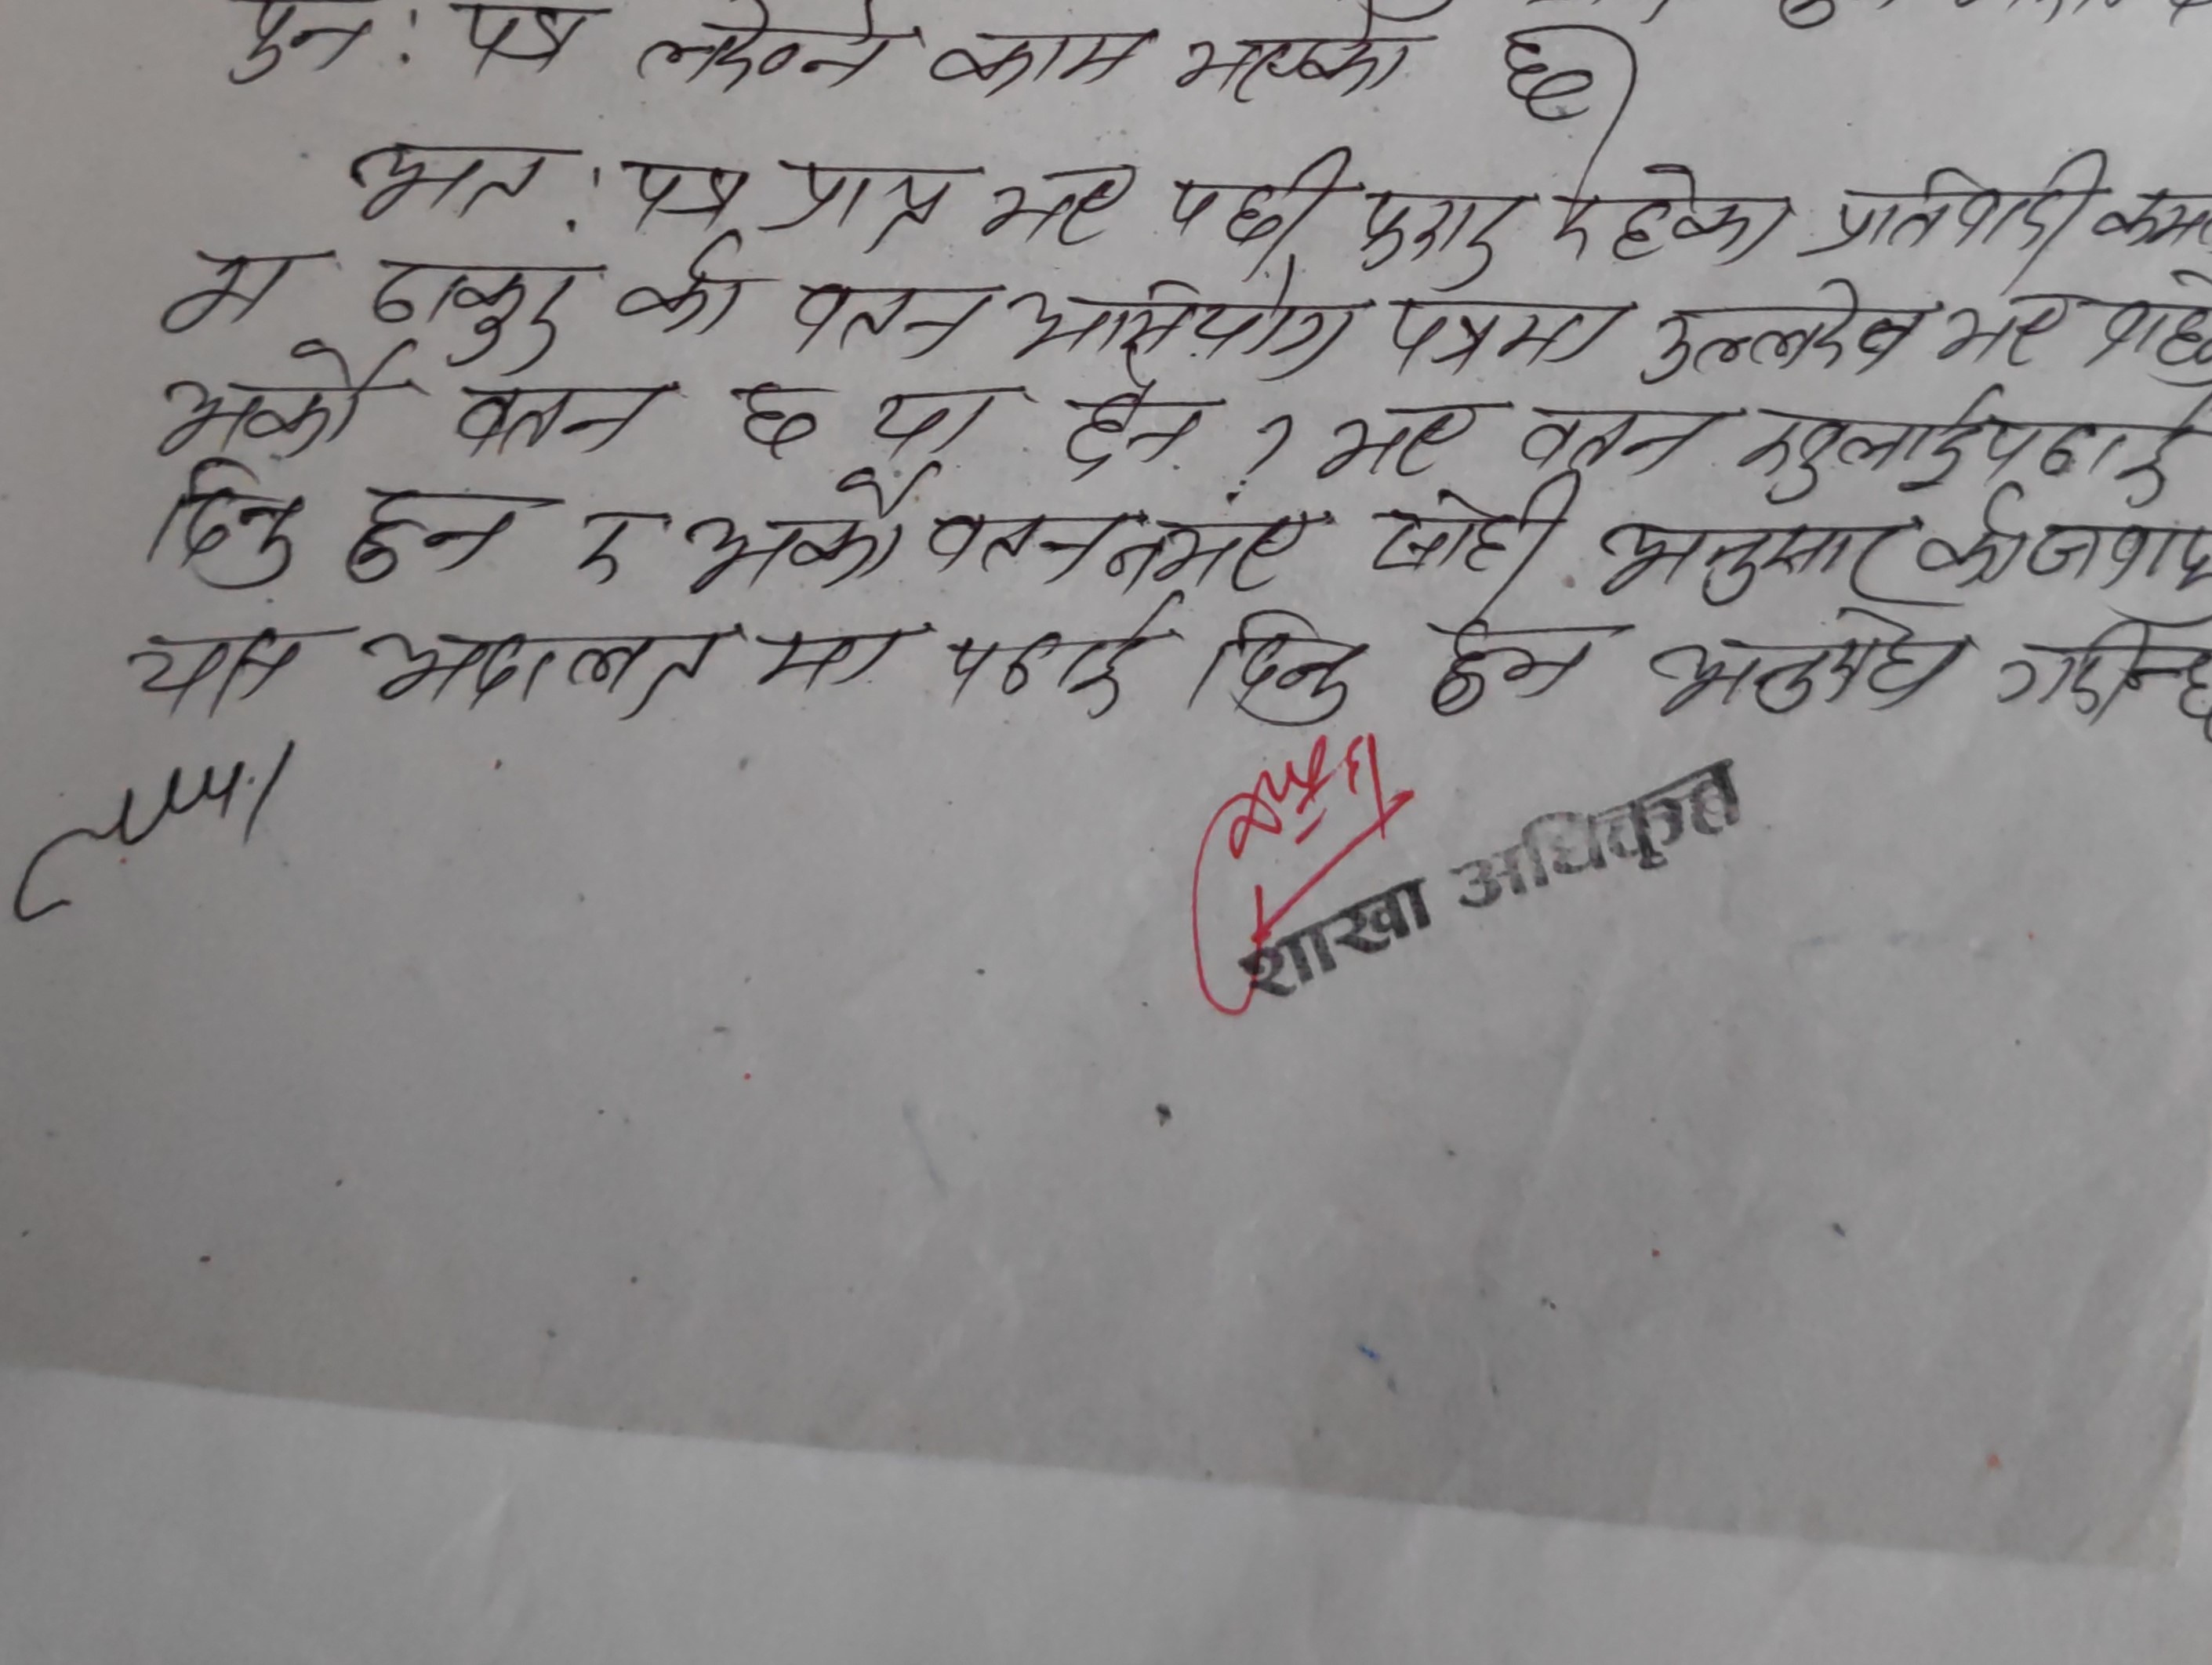 पुन: पत्र लेख्ने काम भएको छ
अत: पत्र प्राप्त भए पछी फरार रहेका प्रतिवादी
म ठाकुर को वतन अभियोग पत्रमा उल्लेख भए वाहेक
अर्को वतन छ या छैन ? भए वतन खुलाई पठाई
दिनु हुन र अर्को वतन नभए सोही अनुसार को जवाफ
यस अदालत मा पठाई दिनु हुन अनुरोध गरीन्छ
शाखा अधिकृत